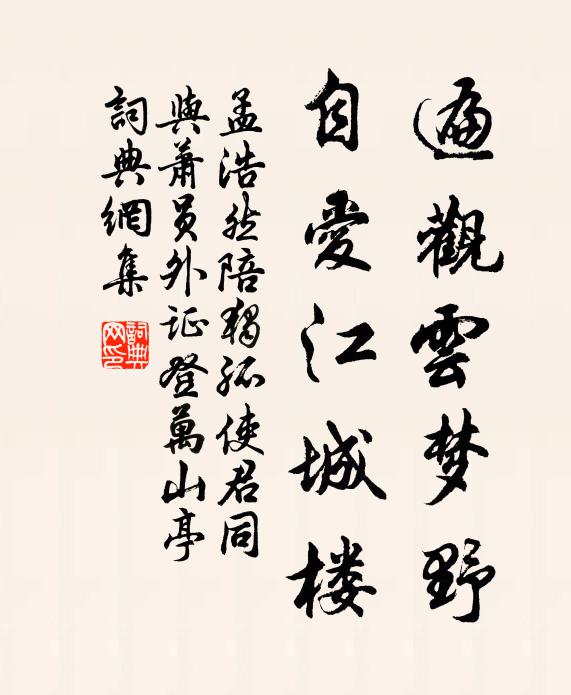 遍觀雲梦野
自愛江城楼
孟浩然陪獨孤使君同
與蕭员外证登萬山亭
詞典網集
詞典
网印